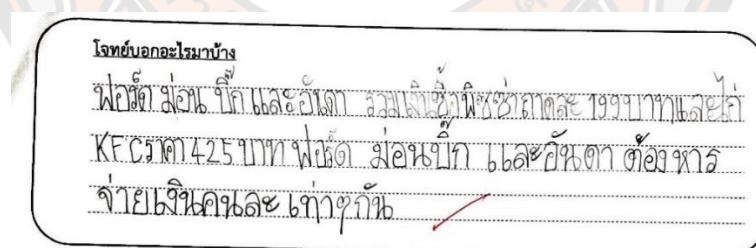 โจทย์บอกอะไรมาบ้าง
ฟอร์ด ม่อน บิ๊ก และอันดา รวมเงินซื้อพิซซ่าถาดละ 199 บาทและไก่
KFC ราคา 425 บาท ฟอร์ด ม่อน บิ๊ก และอันดา ต้องหาร
จ่ายเงินคนละ เท่าๆกัน